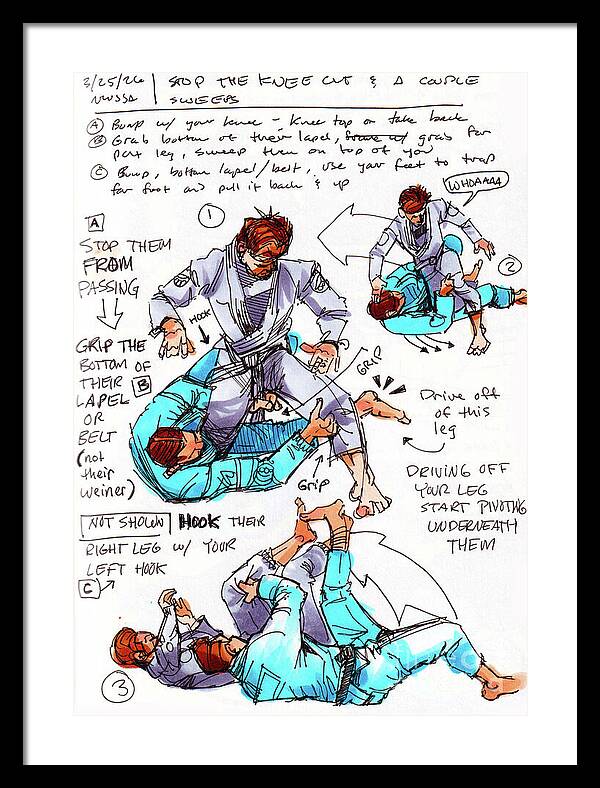 3/25/26 | STOP THE KNEE CUT & A COUPLE
NWSSA SWEEPS
Ⓐ Bump w/ your knee - Knee tap or take back
Ⓑ Grab bottom of their lapel, grab far
pant leg, sweep them on top of you
Ⓒ Bump, bottom lapel/belt, use your feet to trap
far foot and pull it back & up
WHOAAAA
A
1
2
STOP THEM
FROM
PASSING
HOOK
GRIP THE
BOTTOM OF
THEIR B
LAPEL
OR
BELT
(not
their
weiner)
GRIP
Drive off
of this
leg
GRIP
DRIVING OFF
YOUR LEG
START PIVOTING
UNDERNEATH
THEM
NOT SHOWN HOOK THEIR
RIGHT LEG w/ YOUR
LEFT HOOK
C
3